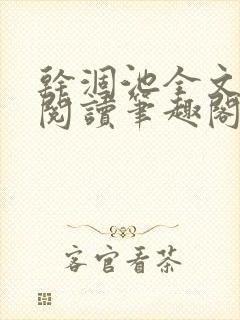 幹涸池全文
閱讀筆趣閣
客官看茶